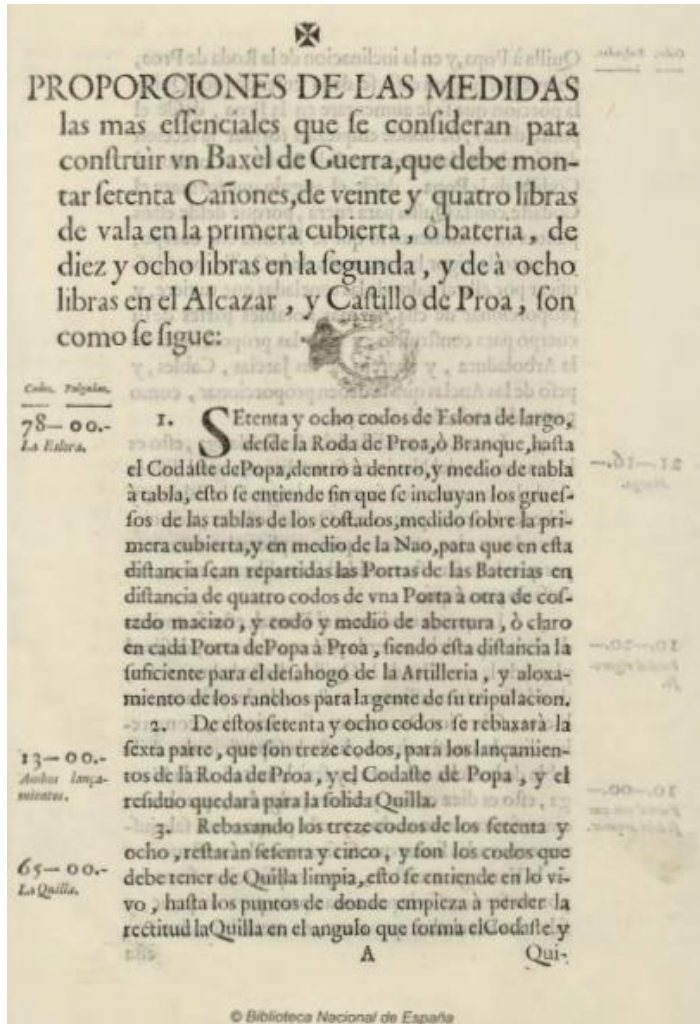 PROPORCIONES DE LAS MEDIDAS
las mas eſſenciales que ſe conſideran para
conſtruir vn Baxèl de Guerra,que debe mon-
tar ſetenta Cañones,de veinte y quatro libras
de vala en la primera cubierta, ò bateria, de
diez y ocho libras en la ſegunda, y de à ocho
libras en el Alcazar, y Caſtillo de Proa, ſon
como ſe ſigue:
Codos. Pulgadas.
78-00.-
La Eslora.
1. SEtenta y ocho codos de Eslora de largo,
deſde la Roda de Proa,ò Branque,haſta
el Codàſte dePopa,dentro à dentro,y medio de tabla
à tabla, eſto ſe entiende ſin que ſe incluyan los grueſ-
ſos de las tablas de los coſtados,medido ſobre la pri-
mera cubierta,y en medio de la Nao,para que en eſta
diſtancia ſean repartidas las Portas de las Baterias en
diſtancia de quatro codos de vna Porta à otra de coſ-
tado macizo, y codo y medio de abertura, ò claro
en cada Porta dePopa à Proa, ſiendo eſta diſtancia la
ſuficiente para el deſahogo de la Artilleria, y aloxa-
miento de los ranchos para la gente de ſu tripulacion.
2. De eſtos ſetenta y ocho codos ſe rebaxarà la
ſexta parte, que ſon treze codos, para los lançamien-
tos de la Roda de Proa, y el Codaſte de Popa, y el
reſiduo quedarà para la ſolida Quilla.
13-00.-
Ambos lança-
mientos.
3. Rebaxando los treze codos de los ſetenta y
ocho, reſtaràn ſeſenta y cinco, y ſon los codos que
debe tener de Quilla limpia,eſto ſe entiende en lo vi-
vo, haſta los puntos de donde empieza à perder la
rectitud laQuilla en el angulo que forma elCodaſte y
65-00.-
La Quilla.
A
Qui-
© Biblioteca Nacional de España